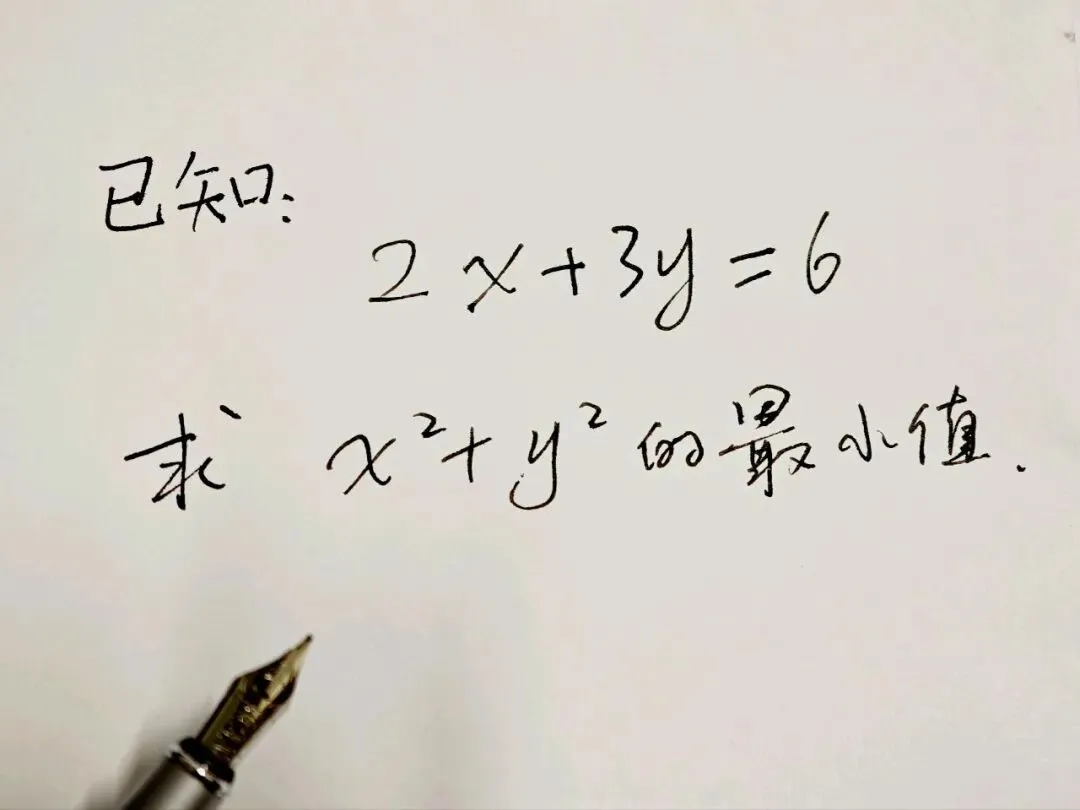 已知:
2x+3y=6
求 x²+y² 的最小值.